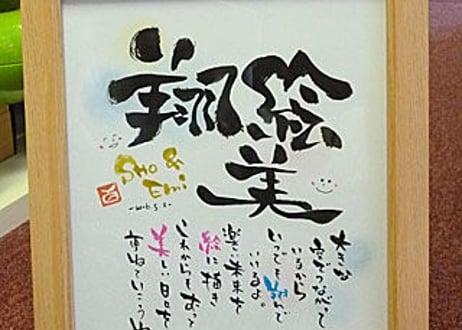 翔
絵美
Sho &
Emi
大きな
空でつながって
いるから
いつでも翔んで
いけるよ。
楽しい未来を
絵に描き
これからもずっと
美しい日々を
重ねていこうね